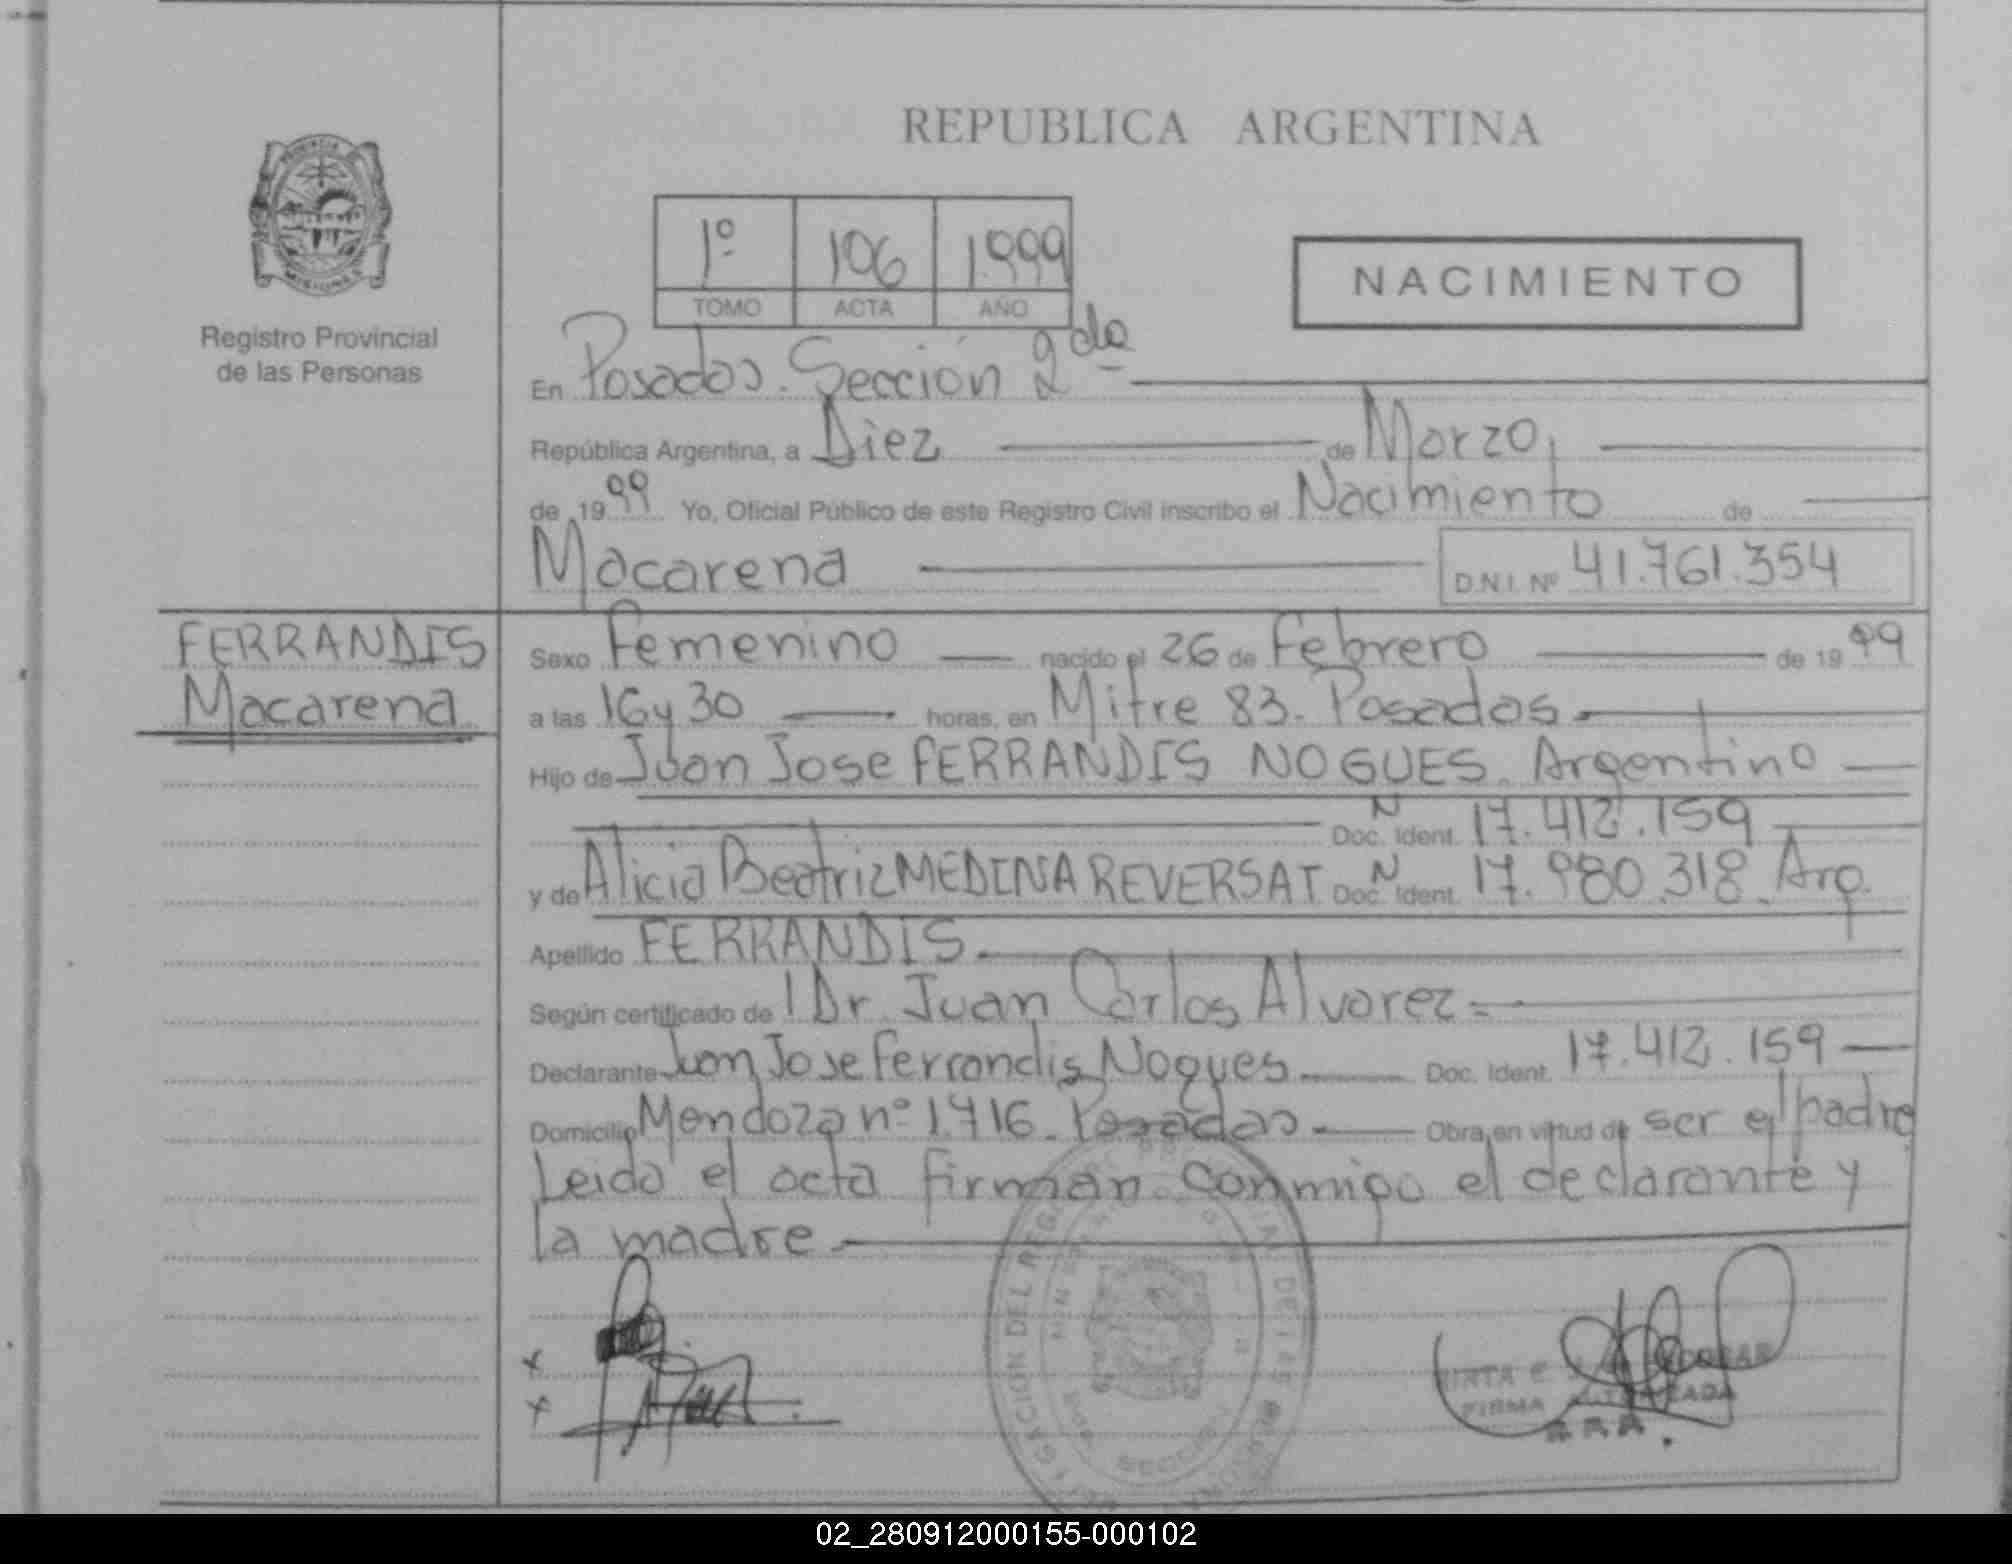 REPUBLICA ARGENTINA
PROVINCIA DE
MISIONES
Registro Provincial
de las Personas
1º 106 1.999
TOMO ACTA AÑO
NACIMIENTO
En Posadas. Sección 2da
República Argentina, a Diez de Marzo,
de 1999 Yo, Oficial Público de este Registro Civil inscribo el Nacimiento de
Macarena D.N.I. Nº 41.761.354
FERRANDIS
Macarena
Sexo Femenino nacido el 26 de Febrero de 1999
a las 16 y 30 horas, en Mitre 83. Posadas.
Hijo de Juan Jose FERRANDIS NOGUES. Argentino
N Doc. Ident. 17.412.159
y de Alicia Beatriz MEDINA REVERSAT N Doc. Ident. 17.980.318. Arg.
Apellido FERRANDIS.
Según certificado de l Dr. Juan Carlos Alvarez
Declarante Juan Jose Ferrandis Nogues Doc. Ident. 17.412.159
Domicilio Mendoza nº 1.716. Posadas. Obra en virtud de ser el padre
Leida el acta firman conmigo el declarante y
la madre
x
x
FIRMA AUTORIZADA
02_280912000155-000102